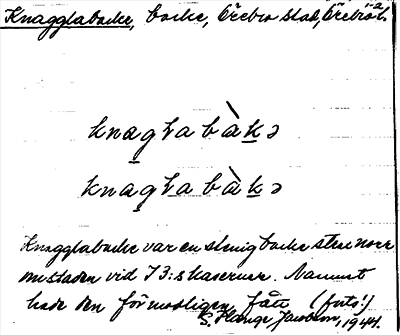 Knagglabacke, backe, Örebro stad, Örebro l.
knagłabàkə
knagłabàkə
Knagglabacke var en stenig backe strax norr
om staden vid I 3:s kaserner. Namnet
hade den förmodligen fått (forts!)
S. Hange Jacobson, 1944.